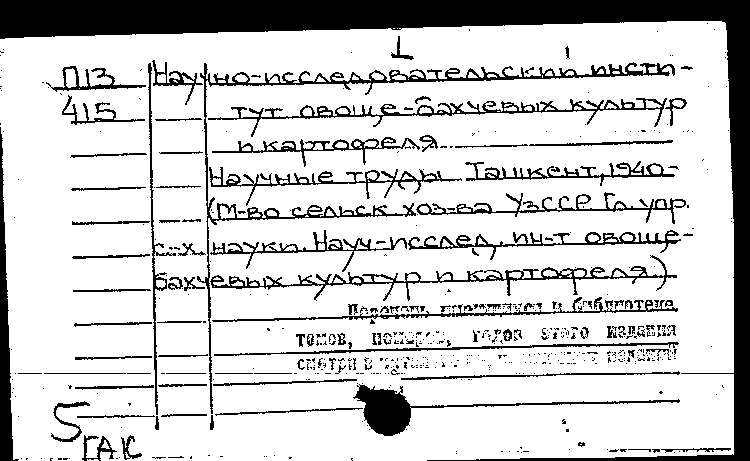 1
П13 Научно-исследовательский инсти-
415 тут овоще-бахчевых культур
и картофеля
Научные труды. Ташкент, 1940-
(М-во сельск. хоз-ва УзССР. Гл. упр.
с.-х. науки. Науч-исслед. ин-т овоще-
бахчевых культур и картофеля.)
Перечень имеющихся в библиотеке
томов, номеров, годов этого издания
смотри в
5
ГАК